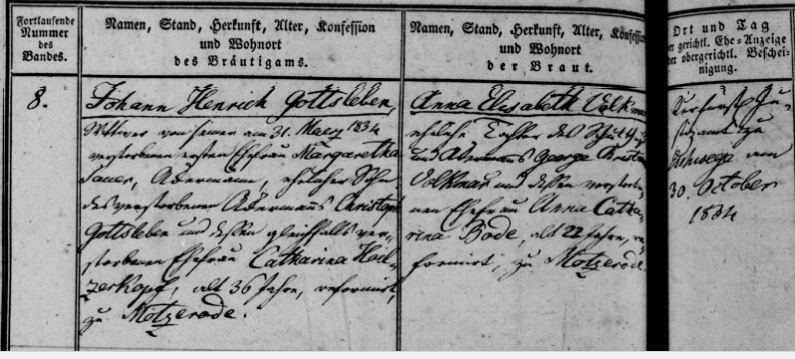 Fortlaufende
Nummer
des
Bandes.
Namen, Stand, Herkunft, Alter, Konfession
und Wohnort
des Bräutigams.
Namen, Stand, Herkunft, Alter, Konfession
und Wohnort
der Braut.
Ort und Tag
der gerichtl. Ehe-Anzeige
der obergerichtl. Beschei-
nigung.
8.
Johann Henrich Gottsleben,
Wittwer von seiner am 31. Maerz 1834
verstorbenen ersten Ehefrau Margaretha
Sauer, Ackermann, ehelicher Sohn
des verstorbenen Ackermanns Christoph
Gottsleben und dessen gleichfalls ver-
storbenen Ehefrau Catharina Hoel-
zerkopf, alt 36 Jahre, reformirt,
zu Motzerode.
Anna Elisabeth Volkmar
eheliche Tochter des
und Ackermanns George Christoph
Volkmar und dessen verstorbe-
nen Ehefrau Anna Catha-
rina Bode, alt 22 Jahre, re-
formirt, zu Motzerode.
Kurfürstl. Ju-
stizamt zu
am
30. October
1834